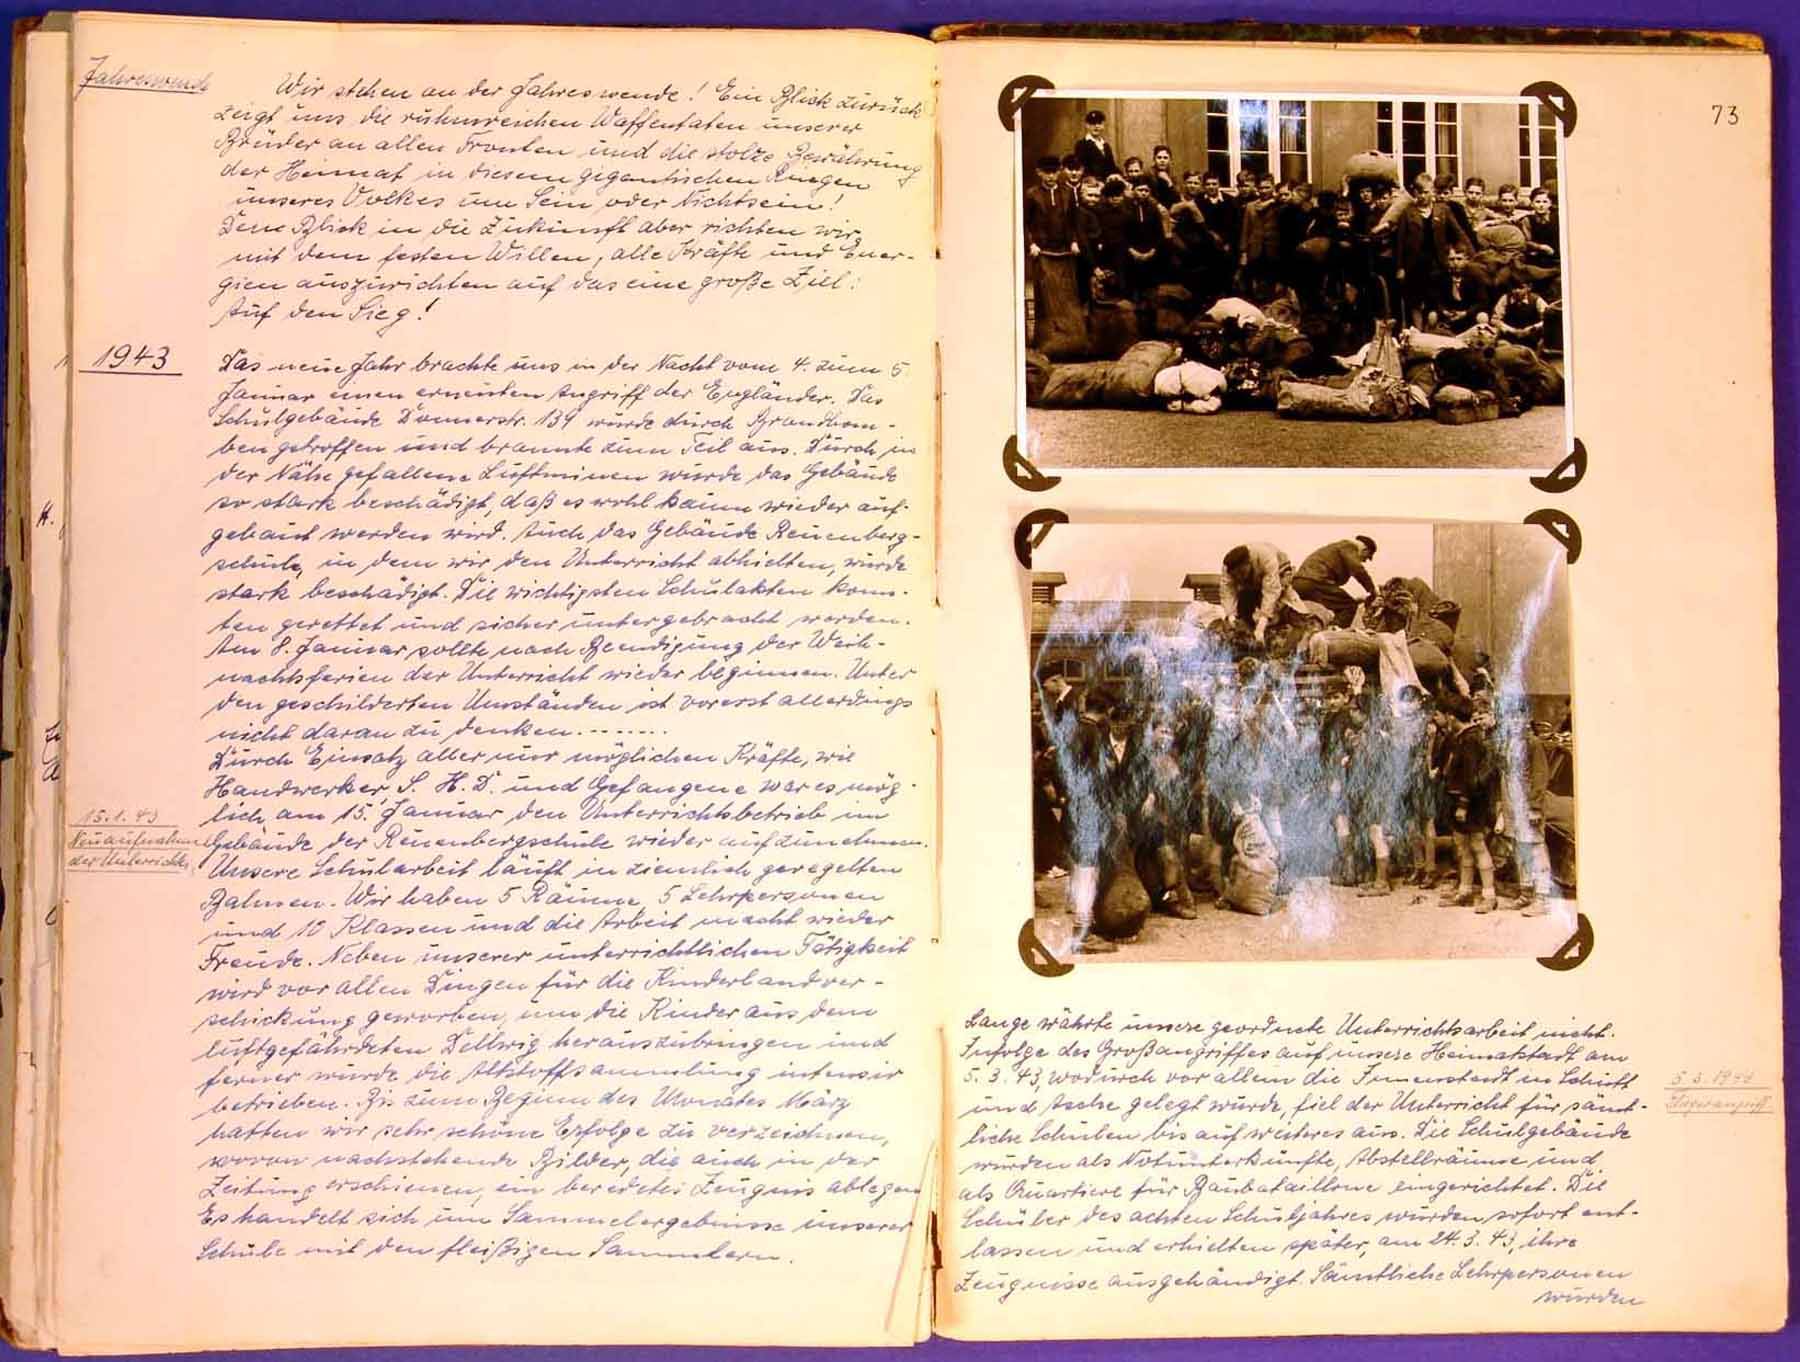 Jahreswende
Wir stehen an der Jahreswende! Ein Blick zurück
zeigt uns die ruhmreichen Waffentaten unserer
Brüder an allen Fronten und die stolze Bewährung
der Heimat in diesem gigantischen Ringen
unseres Volkes um Sein oder Nichtsein!
Den Blick in die Zukunft aber richten wir
mit dem festen Willen, alle Kräfte und Ener-
gien auszurichten auf das eine große Ziel:
Auf den Sieg!
1943
Das neue Jahr brachte uns in der Nacht vom 4. zum 5.
Januar einen erneuten Angriff der Engländer. Das
Schulgebäude Donnerstr. 139 wurde durch Brandbom-
ben getroffen und brannte zum Teil aus. Durch in
der Nähe gefallene Luftminen wurde das Gebäude
so stark beschädigt, daß es wohl kaum wieder auf-
gebaut werden wird. Auch das Gebäude Reuenberg-
schule, in dem wir den Unterricht abhielten, wurde
stark beschädigt. Die wichtigsten Schulakten konn-
ten gerettet und sicher untergebracht werden.
Am 8. Januar sollte nach Beendigung der Weih-
nachtsferien der Unterricht wieder beginnen. Unter
den geschilderten Umständen ist vorerst allerdings
nicht daran zu denken.......
Durch Einsatz aller nur möglichen Kräfte, wie
Handwerker, S. H. D. und Gefangene war es mög-
lich am 15. Januar den Unterrichtsbetrieb im
15.1.43
Neuaufnahme
des Unterrichts
Gebäude der Reuenbergschule wieder aufzunehmen.
Unsere Schularbeit läuft in ziemlich geregelten
Bahnen. Wir haben 5 Räume, 5 Lehrpersonen
und 10 Klassen und die Arbeit macht wieder
Freude. Neben unserer unterrichtlichen Tätigkeit
wird vor allen Dingen für die Kinderlandver-
schickung geworben, um die Kinder aus dem
luftgefährdeten Dellwig herauszubringen und
ferner wurde die Altstoffsammlung intensiv
betrieben. Bis zum Beginn des Monates März
hatten wir sehr schöne Erfolge zu verzeichnen,
wovon nachstehende Bilder, die auch in der
Zeitung erschienen, ein beredetes Zeugnis ablegen
Es handelt sich um Sammelergebnisse unserer
Schule mit den fleißigen Sammlern.
73
Lange währte unsere geordnete Unterrichtsarbeit nicht.
Infolge des Großangriffes auf unsere Heimatstadt am
5.3.43, wodurch vor allem die Innenstadt in Schutt
5.3.1943
und Asche gelegt wurde, fiel der Unterricht für sämt-
liche Schulen bis auf weiteres aus. Die Schulgebäude
wurden als Notunterkünfte, Abstellräume und
als Quartiere für Baubataillone eingerichtet. Die
Schüler des achten Schuljahres wurden sofort ent-
lassen und erhielten später, am 24.3.43, ihre
Zeugnisse ausgehändigt. Sämtliche Lehrpersonen
wurden